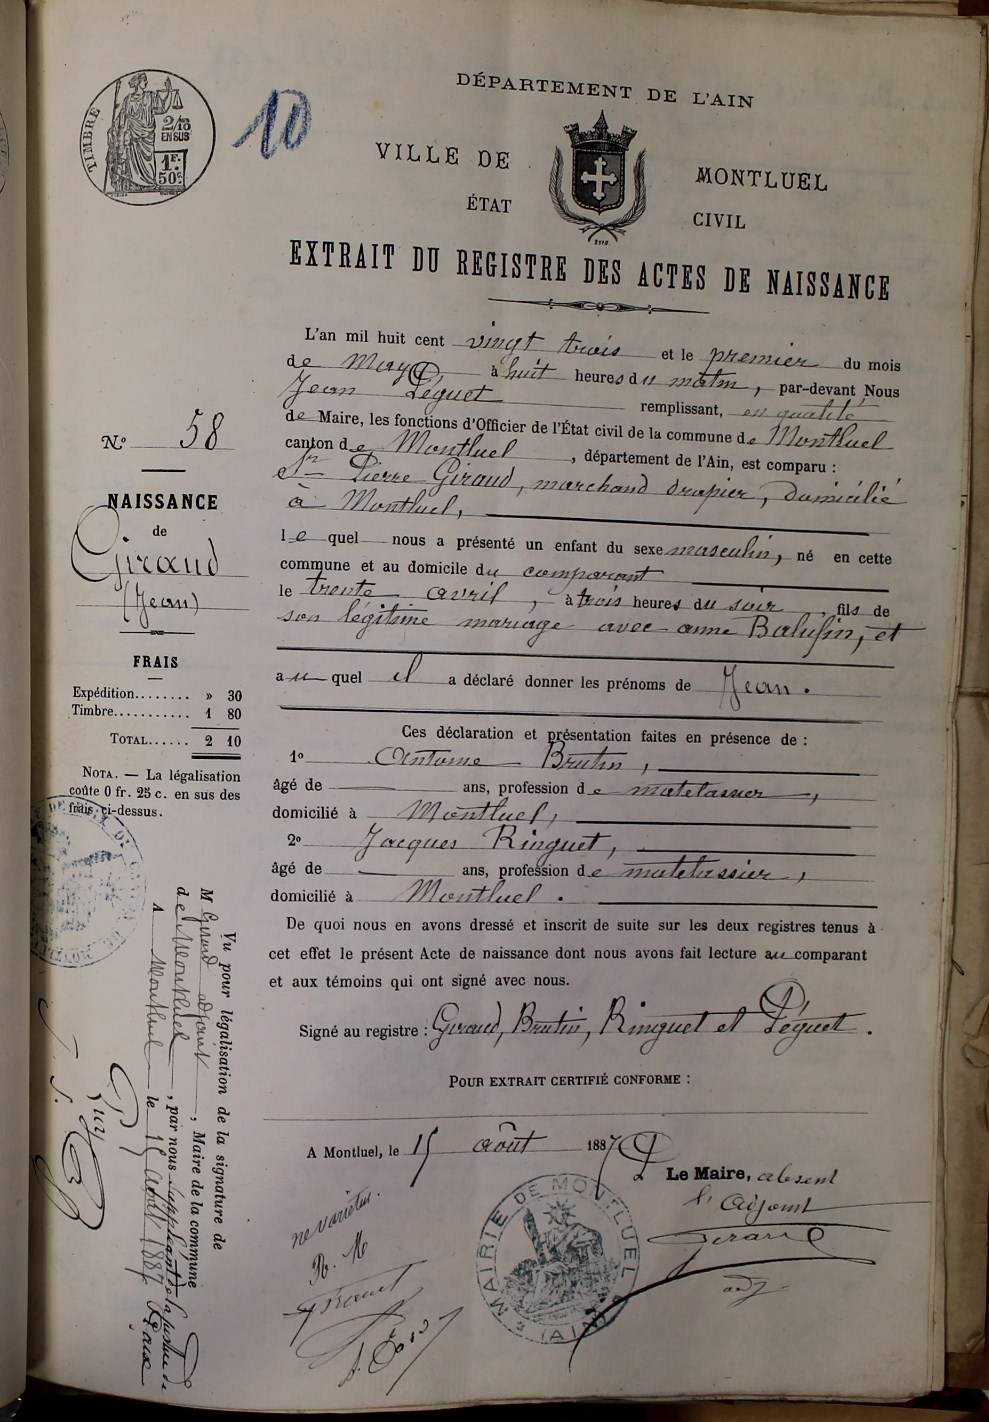 TIMBRE
2/10
EN SUS
1F.
50c.
10
DÉPARTEMENT DE L'AIN
VILLE DE MONTLUEL
ÉTAT CIVIL
EXTRAIT DU REGISTRE DES ACTES DE NAISSANCE
L'an mil huit cent vingt trois et le premier du mois
de May à huit heures du matin, par-devant Nous
Jean Péguet remplissant, en qualité
de Maire, les fonctions d'Officier de l'État civil de la commune de Montluel
canton de Montluel, département de l'Ain, est comparu :
Sr Pierre Giraud, marchand drapier, domicilié
à Montluel,
lequel nous a présenté un enfant du sexe masculin, né en cette
commune et au domicile du comparant
le trente avril, à trois heures du soir, fils de
son légitime mariage avec anne Balufin, et
auquel il a déclaré donner les prénoms de Jean.
Ces déclaration et présentation faites en présence de :
1o Antoine Brutin,
âgé de ans, profession de matelassier,
domicilié à Montluel,
2o Jacques Ringuet,
âgé de ans, profession de matelassier,
domicilié à Montluel.
De quoi nous en avons dressé et inscrit de suite sur les deux registres tenus à
cet effet le présent Acte de naissance dont nous avons fait lecture au comparant
et aux témoins qui ont signé avec nous.
Signé au registre : Giraud, Brutin, Ringuet et Péguet.
POUR EXTRAIT CERTIFIÉ CONFORME :
A Montluel, le 15 août 1887
Le Maire, absent
l'adjoint
adj
ne varietur.
MAIRIE DE MONTLUEL
(AIN)
No 58
NAISSANCE
de
Giraud
(Jean)
FRAIS
Expédition........ » 30
Timbre........... 1 80
TOTAL...... 2 10
NOTA. — La légalisation
coûte 0 fr. 25 c. en sus des
frais ci-dessus.
Vu pour légalisation de la signature de
M Gerard adjoint, Maire de la commune
de Montluel, par nous suppléant de la justice de Paix
A Montluel le 15 août 1887